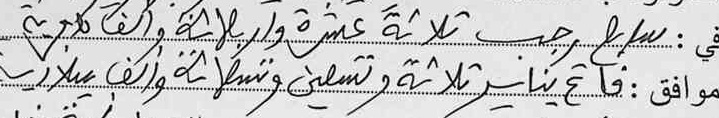 في : سابع رجب ثلاثة عشرة وأربعمائة وألف هجرية
موافق : فاتح يناير ثلاثة وتسعين وتسعمائة وألف ميلادية